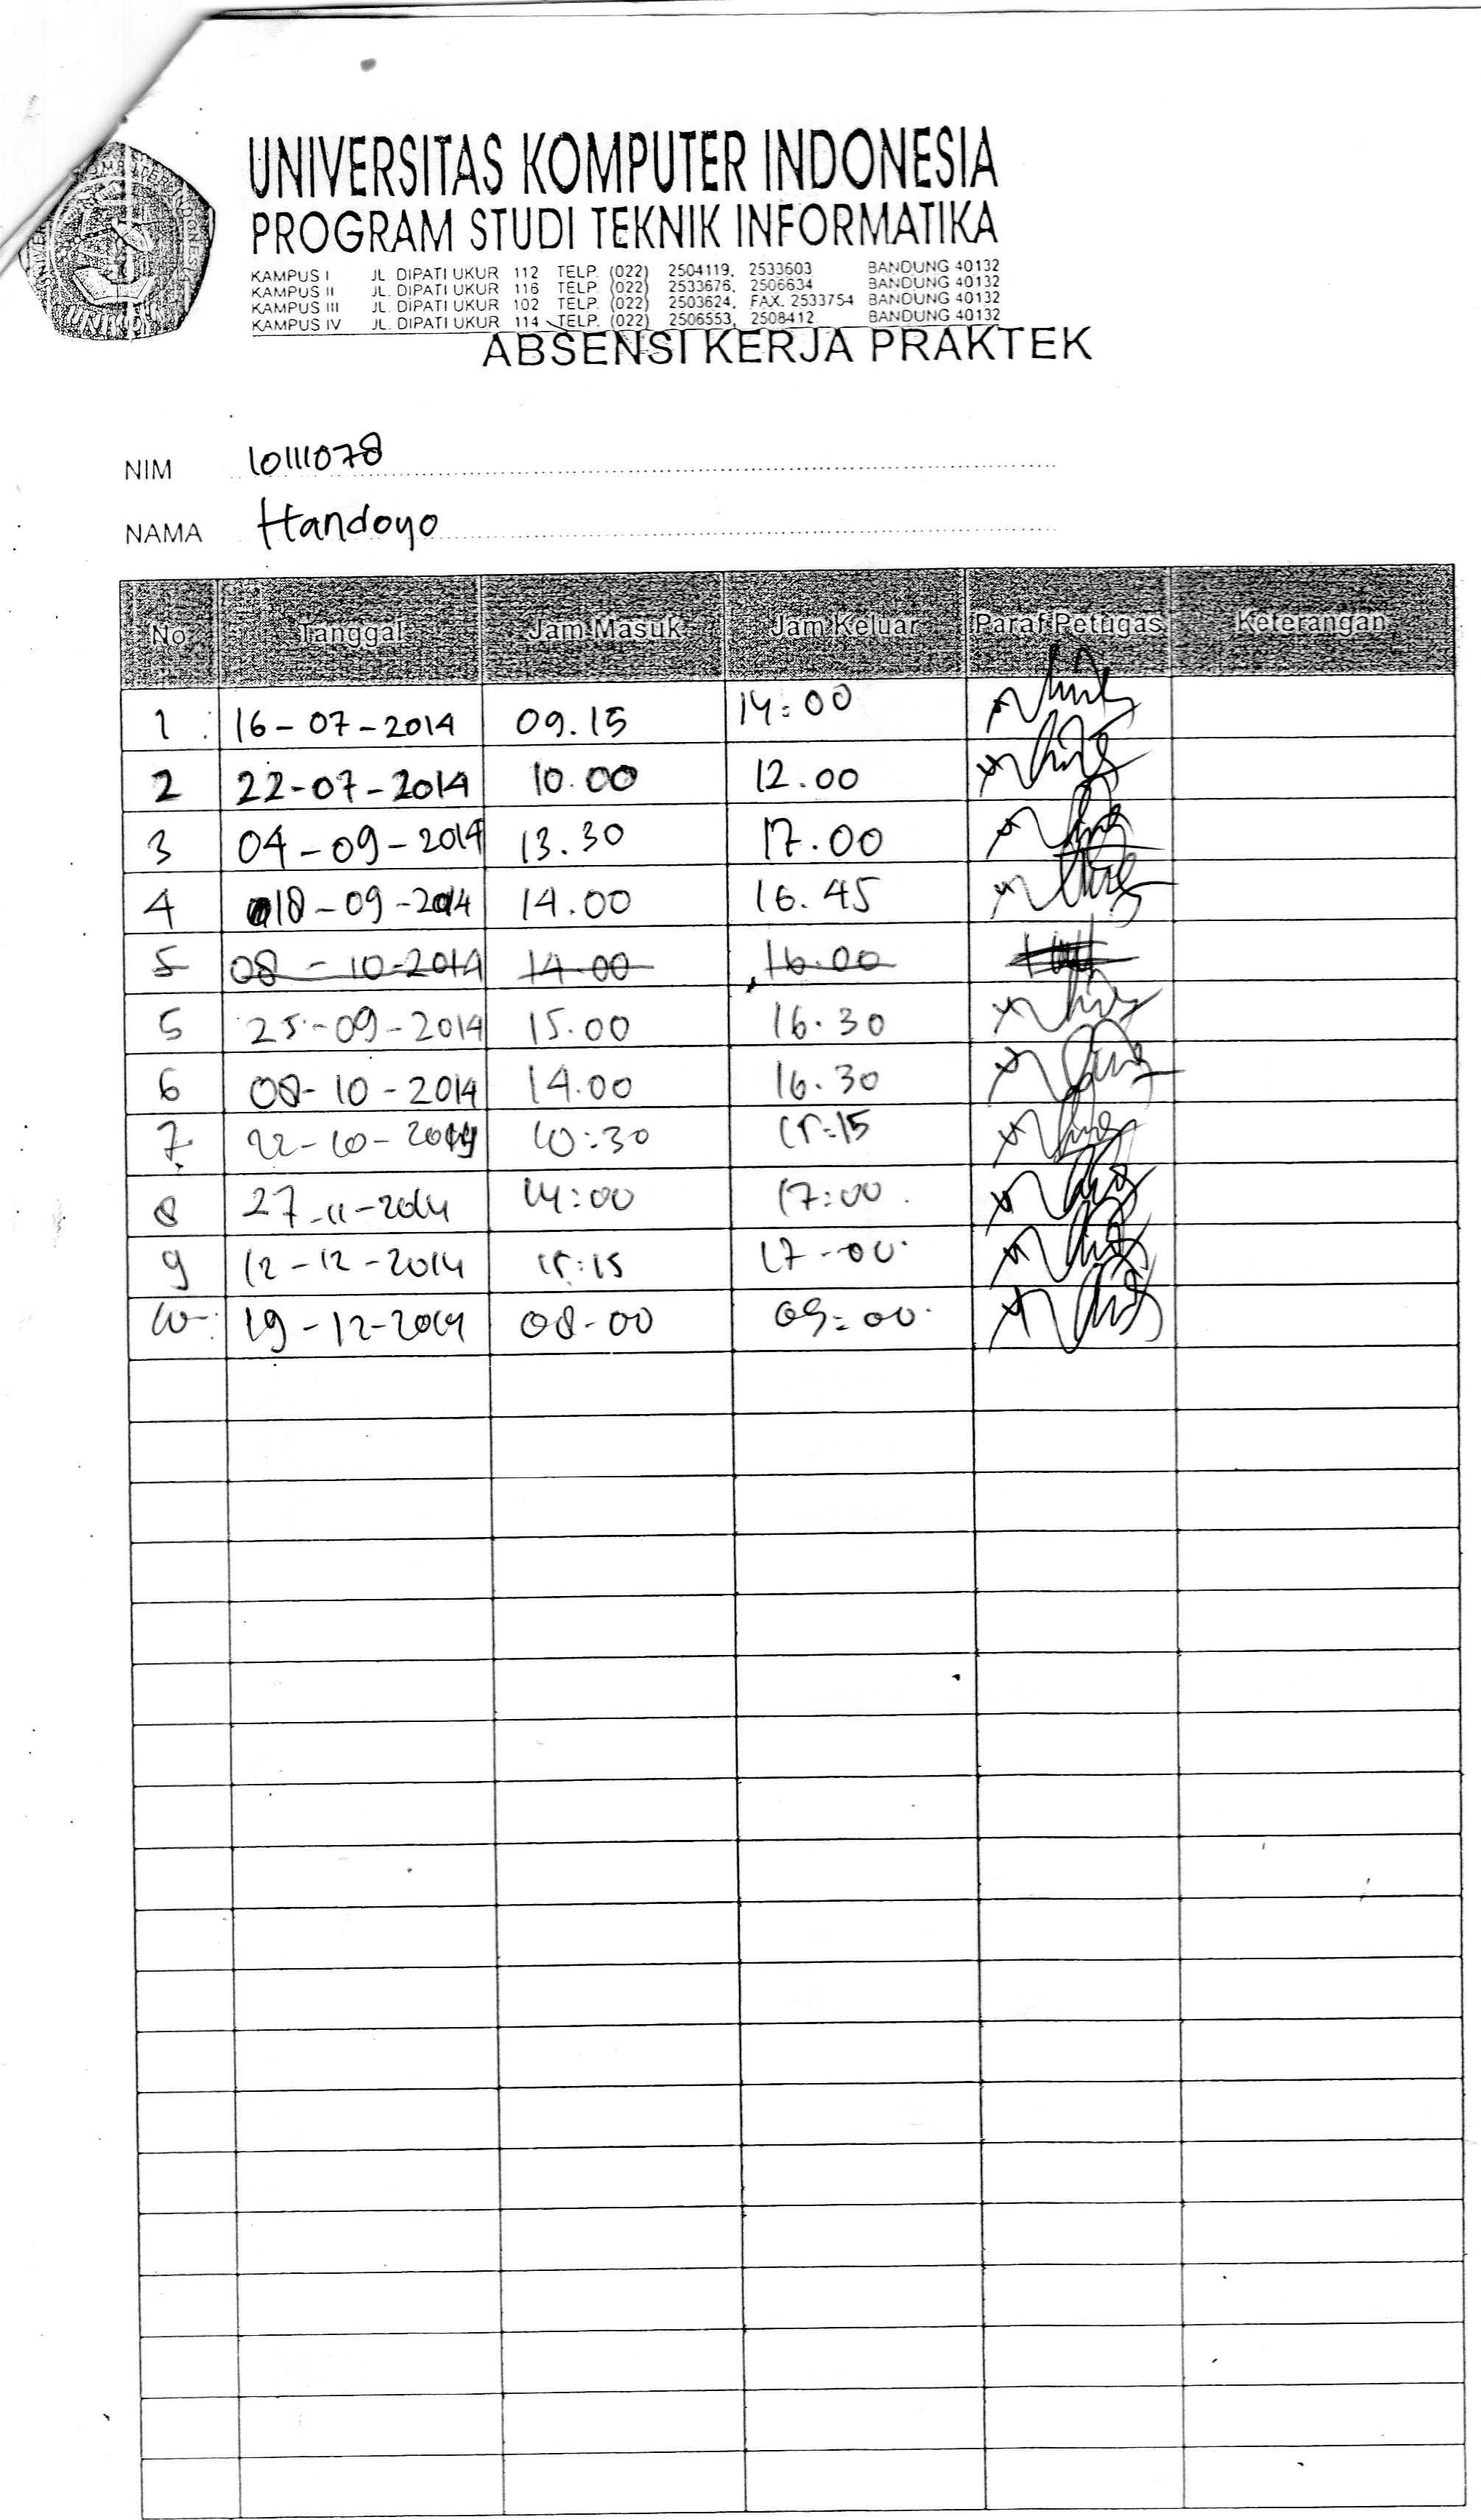 UNIVERSITAS KOMPUTER INDONESIA
PROGRAM STUDI TEKNIK INFORMATIKA
KAMPUS I JL. DIPATI UKUR 112 TELP. (022) 2504119, 2533603 BANDUNG 40132
KAMPUS II JL. DIPATI UKUR 116 TELP. (022) 2533676, 2506634 BANDUNG 40132
KAMPUS III JL. DIPATI UKUR 102 TELP. (022) 2503624, FAX. 2533754 BANDUNG 40132
KAMPUS IV JL. DIPATI UKUR 114 TELP. (022) 2506553, 2508412 BANDUNG 40132
ABSENSI KERJA PRAKTEK
NIM 10111078
NAMA Handoyo
No Tanggal Jam Masuk Jam Keluar Paraf Petugas Keterangan
1 16-07-2014 09.15 14:00
2 22-07-2014 10.00 12.00
3 04-09-2014 13.30 17.00
4 18-09-2014 14.00 16.45
5 08-10-2014 14.00 16.00
5 25-09-2014 15.00 16.30
6 08-10-2014 14.00 16.30
7. 22-10-2014 10:30 15:15
8 27-11-2014 14:00 17:00
9 12-12-2014 15:15 17-00
10- 19-12-2014 08-00 09:00